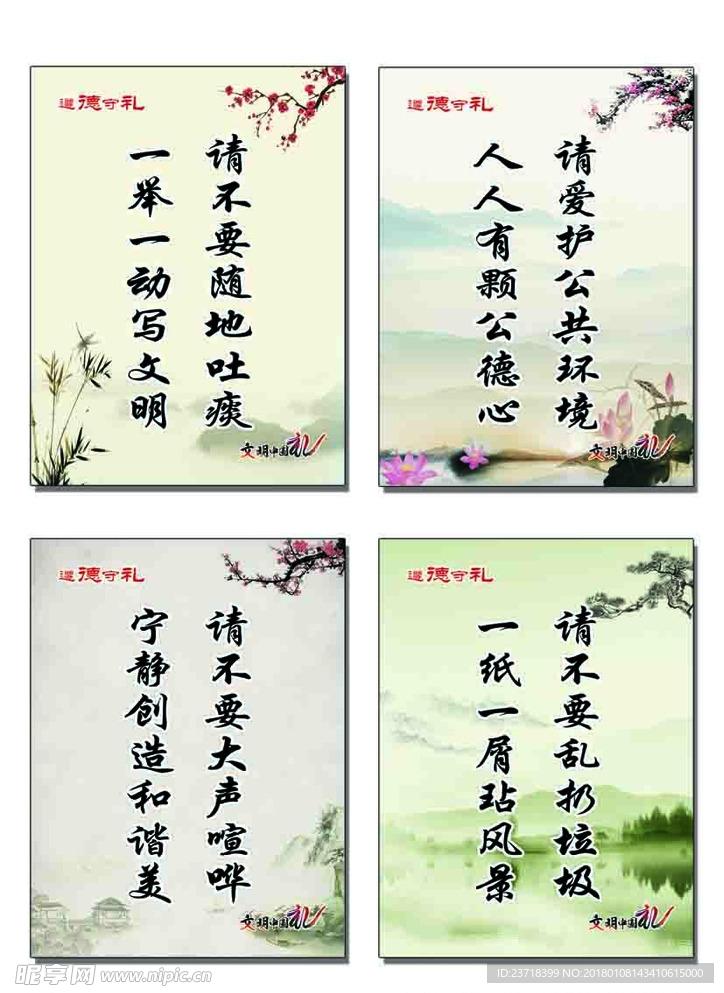 遵德守礼
请不要随地吐痰
一举一动写文明
文明中国礼
遵德守礼
请爱护公共环境
人人有颗公德心
文明中国礼
遵德守礼
请不要大声喧哗
宁静创造和谐美
文明中国礼
遵德守礼
请不要乱扔垃圾
一纸一屑玷风景
文明中国礼
昵享网 www.nipic.cn
ID:23718399 NO:20180108143410615000